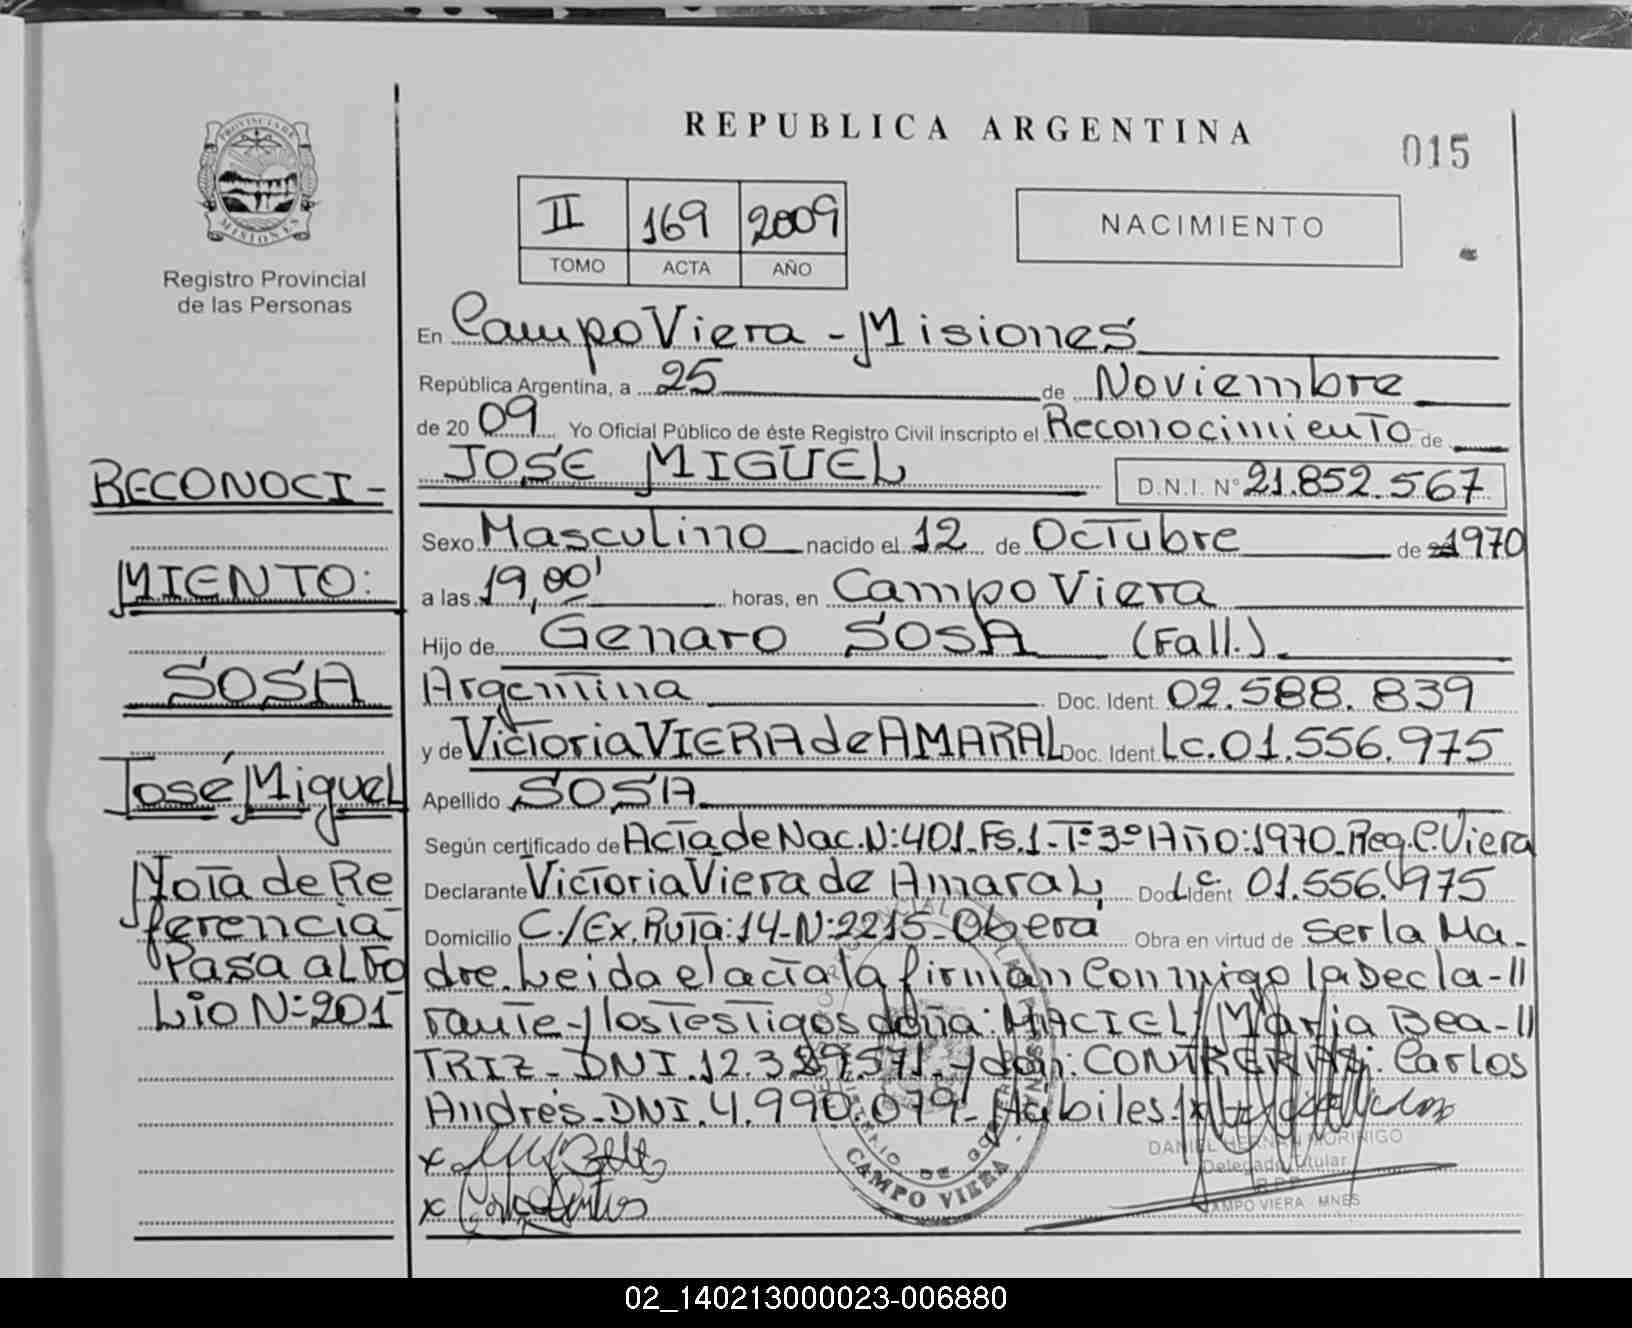 REPUBLICA ARGENTINA
015
PROVINCIA DE
MISIONES
Registro Provincial
de las Personas
II 169 2009
TOMO ACTA AÑO
NACIMIENTO
En Campo Viera - Misiones
República Argentina, a 25 de Noviembre
de 20 09 Yo Oficial Público de éste Registro Civil inscripto el Reconocimiento de
JOSE MIGUEL D.N.I. N° 21.852.567
Sexo Masculino nacido el 12 de Octubre de 1970
a las 19,00' horas, en Campo Viera
Hijo de Genaro SOSA (Fall.)
Argentina Doc. Ident. 02.588.839
y de Victoria VIERA de AMARAL Doc. Ident. Lc. 01.556.975
Apellido SOSA
Según certificado de Acta de Nac. N: 401-Fs.1-T° 3° Año: 1970-Reg. C. Viera
Declarante Victoria Viera de Amaral, Doc. Ident Lc. 01.556.975
Domicilio C./Ex. Ruta: 14-N: 2215-Oberá Obra en virtud de ser la Ma-
dre. Leida el acta la firman conmigo la Decla-//
rante y los testigos doña: MACIEL: Maria Bea-//
TRIZ - DNI. 12.389.571.- y don: CONTRERAS: Carlos
Andrés - DNI. 4.990.079 - Hábiles.
x
x
DANIEL HERNAN MORINIGO
Delegado Titular
R.P.P.
CAMPO VIERA MNES
CAMPO VIERA
RECONOCI-
MIENTO:
SOSA
José Miguel
Nota de Re
ferencia
Pasa al Fo
lio N: 201
02_140213000023-006880